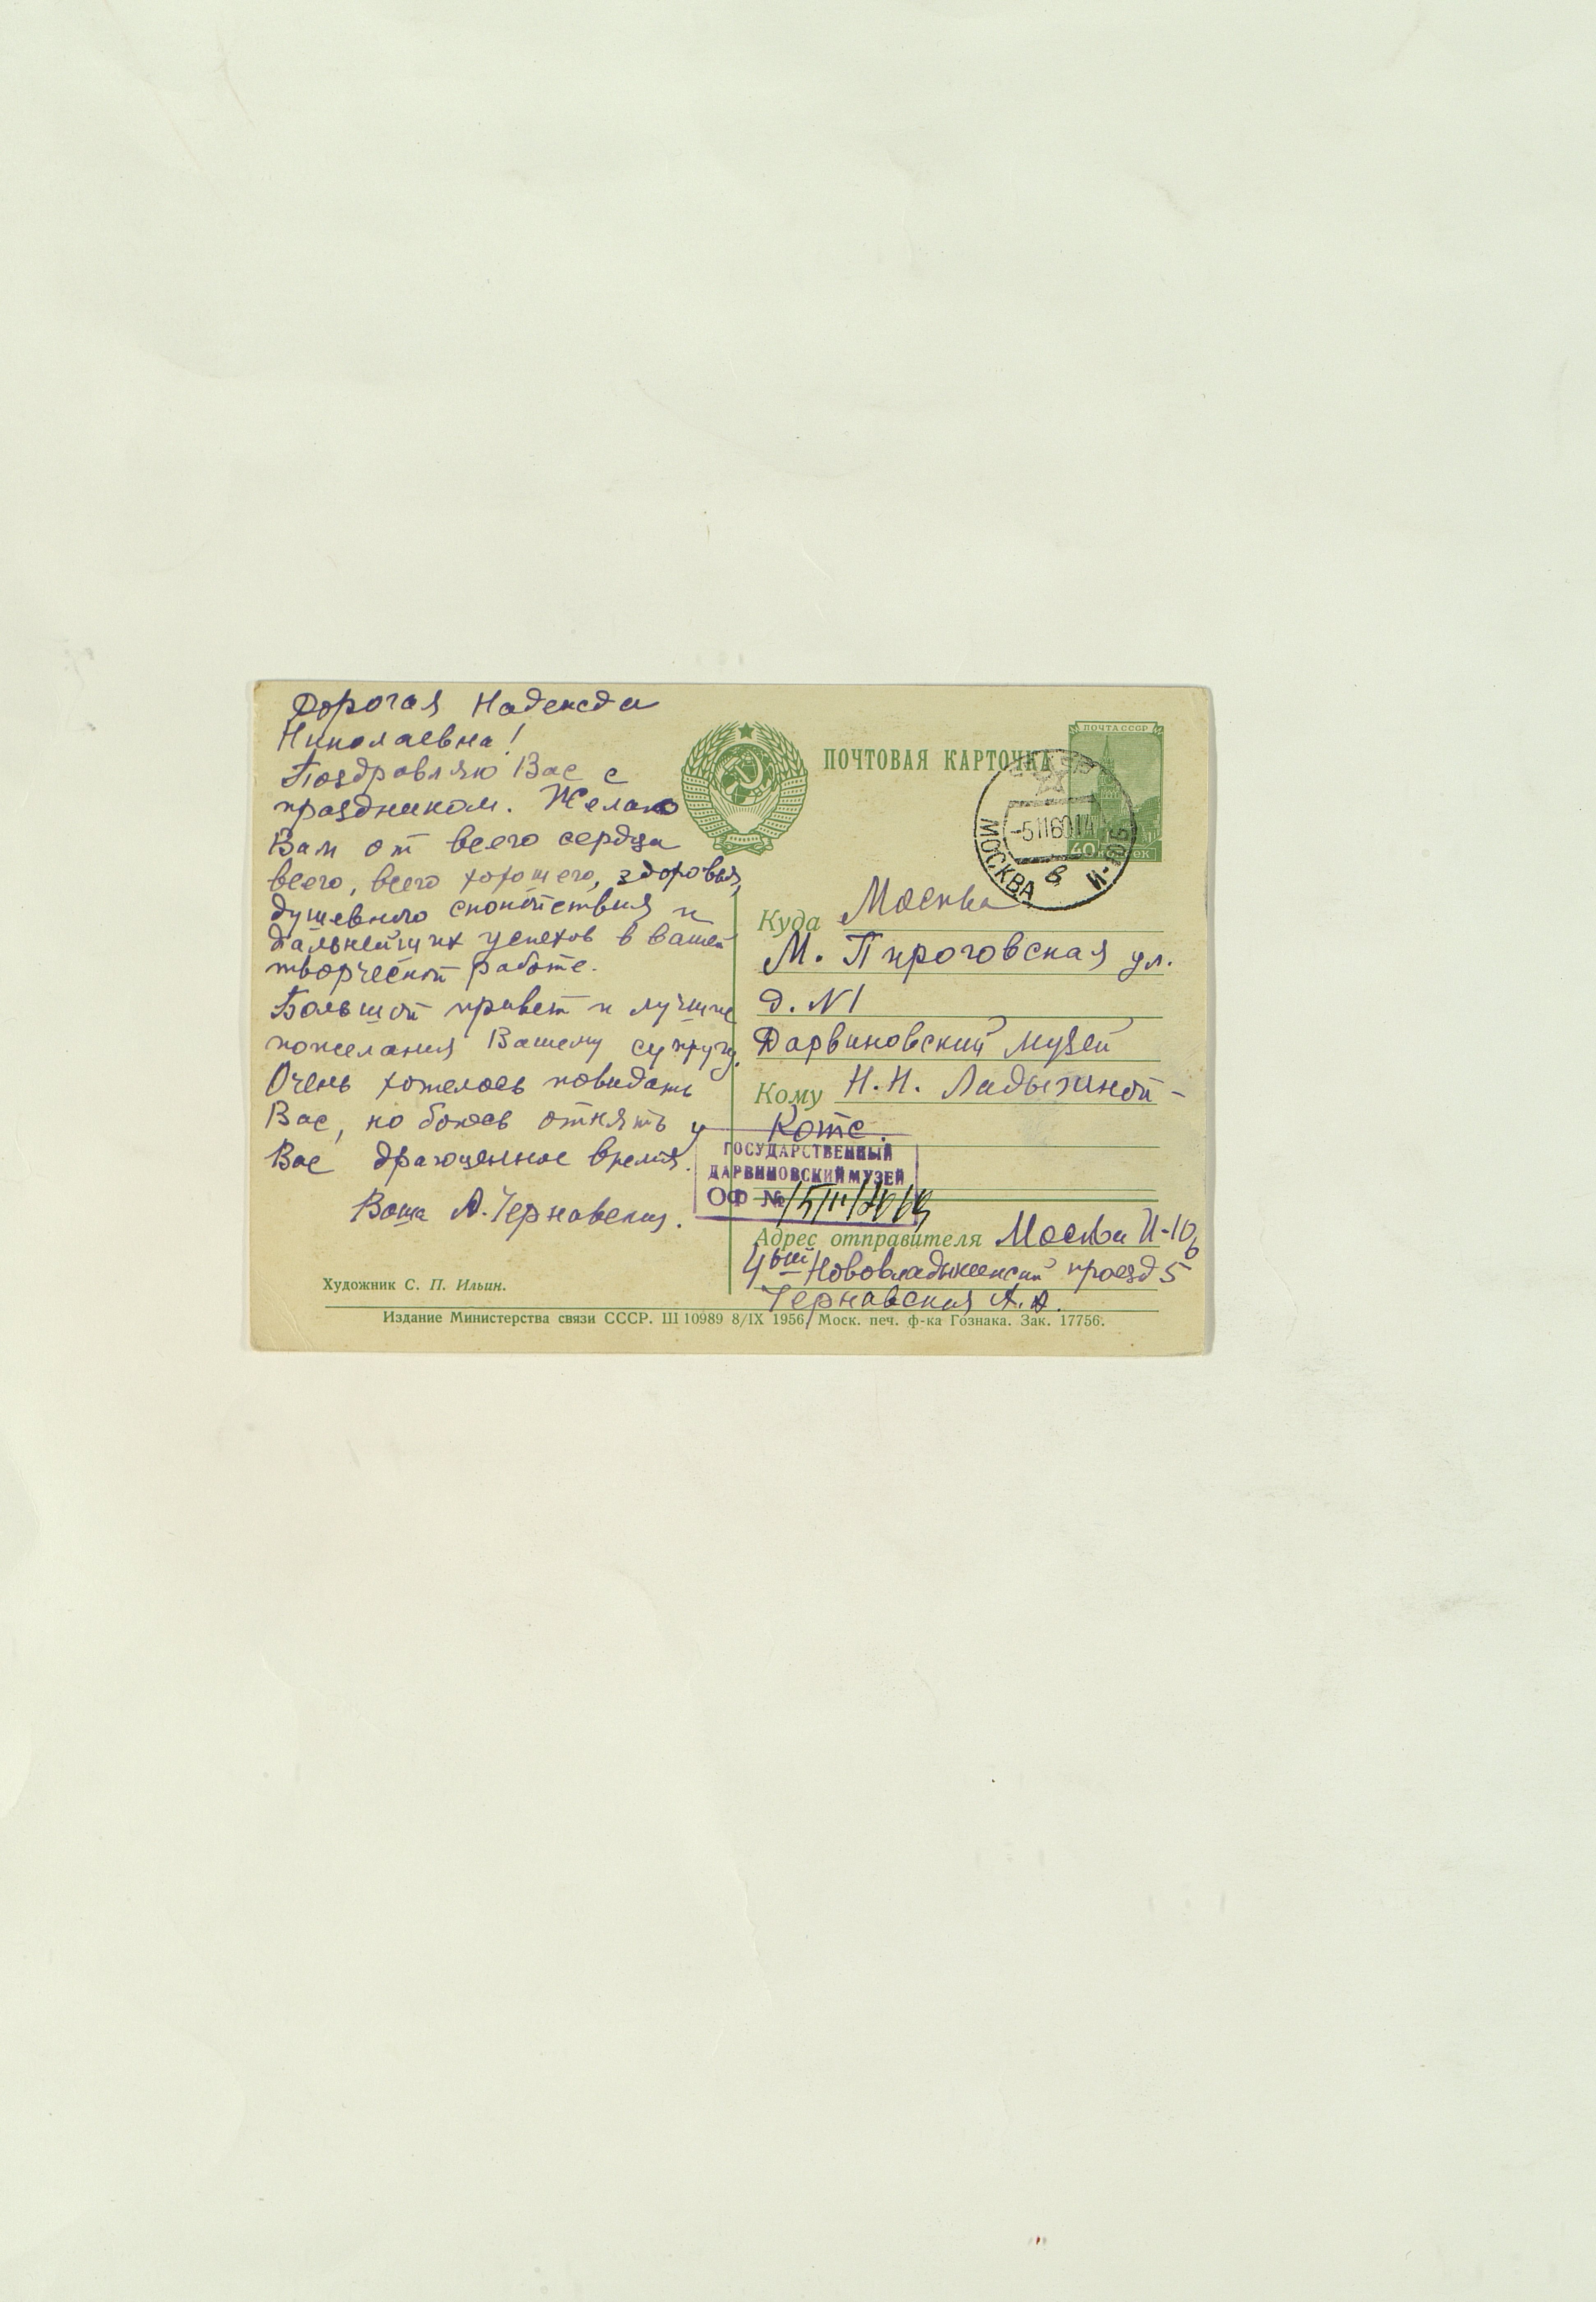 Дорогая Надежда
Николаевна!
Поздравляю Вас с
праздником. Желаю
Вам от всего сердца
всего, всего хорошего, здоровья,
душевного спокойствия и
дальнейших успехов в вашей
творческой работе.
Большой привет и лучшие
пожелания Вашему супругу.
Очень хотелось повидать
Вас, но боюсь отнять у
Вас драгоценное время.
Ваша А. Чернавская.
Художник С. П. Ильин.
ПОЧТОВАЯ КАРТОЧКА
ПОЧТА СССР
40 копеек
МОСКВА И-106
в
Куда Москва
М. Пироговская ул.
д. N 1
Дарвиновский музей
Кому Н.Н. Ладыгиной-
Котс.
ГОСУДАРСТВЕННЫЙ
ДАРВИНОВСКИЙ МУЗЕЙ
ОФ №
Адрес отправителя Москва И-106
4ый Нововладыкинский проезд 5
Чернавская А.А.
Издание Министерства связи СССР. Ш 10989 8/IX 1956 Моск. печ. ф-ка Гознака. Зак. 17756.